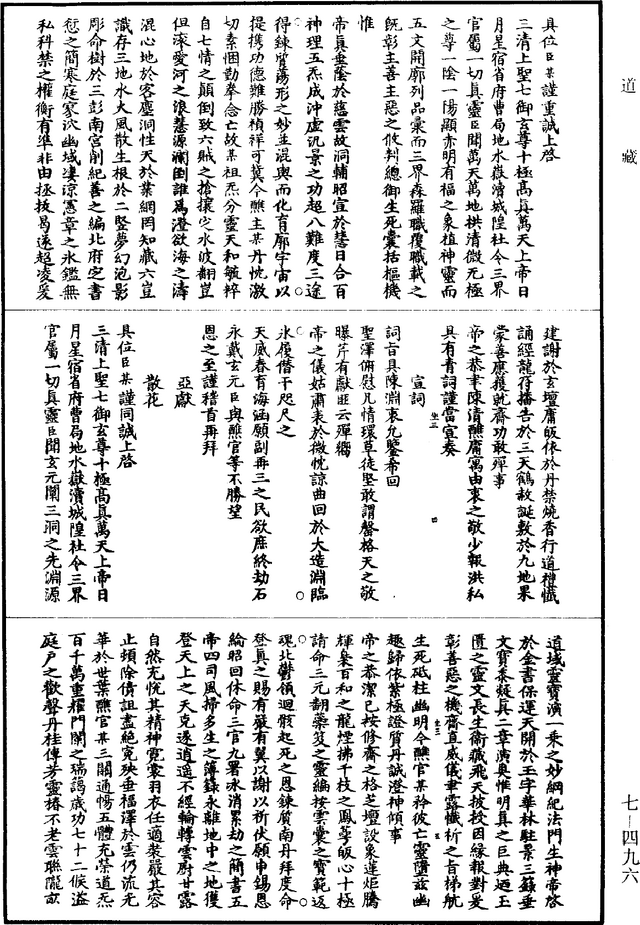 道藏
具位臣某謹重誠上啓
三清上聖七御玄尊十極高真萬天上帝日
月星宿省府曹局地水嶽瀆城隍社令三界
官屬一切真靈臣聞萬天萬地拱清微无極
之尊一陰一陽顯赤明有福之象植神靈而
五文開廓列品彙而三界森羅職覆職載之
旣彰主善主惡之攸判總御生死囊括樞機
惟
帝真垂蔭於慈雲故洞輔昭宣於慧日合百
神理五炁成沖虛沆景之功超八難度三途
得鍊質蕩形之妙並混輿而化育廓宇宙以
提携功德難勝楨祥可冀今醮主某丹忱激
切素悃勤拳念亡故某祖炁分靈天和毓粹
自七情之顛倒致六賊之搶攘定水波翻豈
但滚愛河之浪慧源瀾倒誰爲澄欲海之濤
混心地於客塵洞性天於業網罔知藏六豈
識存三地水火風散生根於二竪夢幻泡影
彫命樹於三彭南宮削紀善之編北府定書
愆之簡寒庭寂沴幽域凄涼憲章之氷鑑無
私科禁之權衡有準非由拯拔曷遂超凌爰
建謝於玄壇庸皈依於丹禁燒香行道禮懺
誦經龍符播告於三天鶴赦誕敷於九地果
蒙善應獲就齋功敢殫事
帝之恭聿陳清醮庸寓由衷之敬少報洪私
具有青詞謹當宣奏
宣詞
詞旨具陳淵衷允鑒希回
聖澤俯慰凡情環草徒堅敢謂馨格天之敬
曝芹有獻匪云殫饗
帝之儀姑肅表於微忱諒曲回於大造淵臨
氷履僭干咫尺之
天威春育海涵願副再三之民欲庶終劫石
永戴玄元臣與醮官等不勝望
恩之至謹稽首再拜
亞獻
散花
具位臣某謹同誠上啓
三清上聖七御玄尊十極高真萬天上帝日
月星宿省府曹局地水嶽瀆城隍社令三界
官屬一切真靈臣聞玄元闡三洞之先淵源
道域靈寶演一乘之妙綱紀法門生神帝啓
於金書保運天開於玉字華林駐景三籙垂
文寶黍凝真二章演奧惟明真之巨典廼玉
匱之靈文長生衛藏飛天披授因緣報對爰
彰善惡之機齋直威儀聿露懺祈之旨梯航
生死砥柱幽明今醮官某矜彼亡靈墮茲幽
趣歸依紫極證質丹誠澄神傾事
帝之恭潔已按修齋之格芝壇設象蓮炬騰
輝梟百和之龍煙拂千枝之鳳蠟皈心十極
請命三元翻蘂笈之靈編按雲囊之寶範返
魂北鬱領迴骸起死之恩鍊質南丹拜度命
登真之賜有嚴有翼以謝以祈伏願申錫恩
綸昭回休命三官九署冰消累劫之簡書五
帝四司風掃多生之簿錄永離地中之地獲
登天上之天克遂逍遥不經輪轉雲廚甘露
自然充恱其精神霓裳羽衣任適裝嚴其容
止頻除債詛盡絶寃殃垂福澤於雲仍流光
華於世葉醮官某三關通暢五體充榮道炁
百千萬重耀門闌之瑞藹歲功七十二候溢
庭户之歡聲丹桂傳芳靈椿不老雲聯隴畝
七－四九六